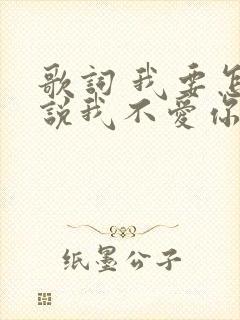 歌詞 我 要 怎
說我 不 愛 你
纸墨公子